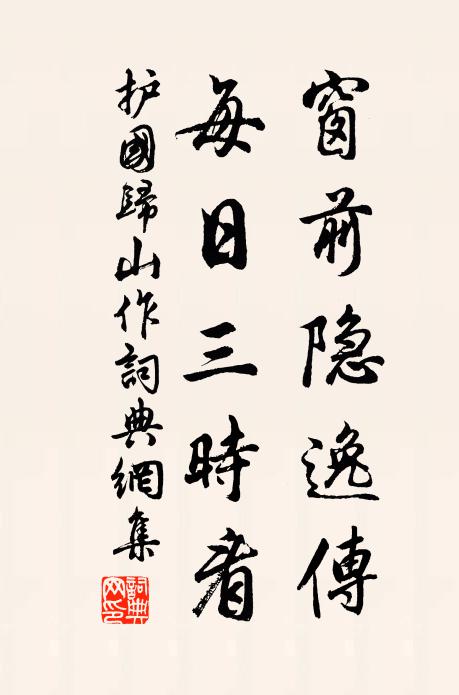 窗前隐逸傳
每日三時看
护國歸山作詞典網集
詞典網印